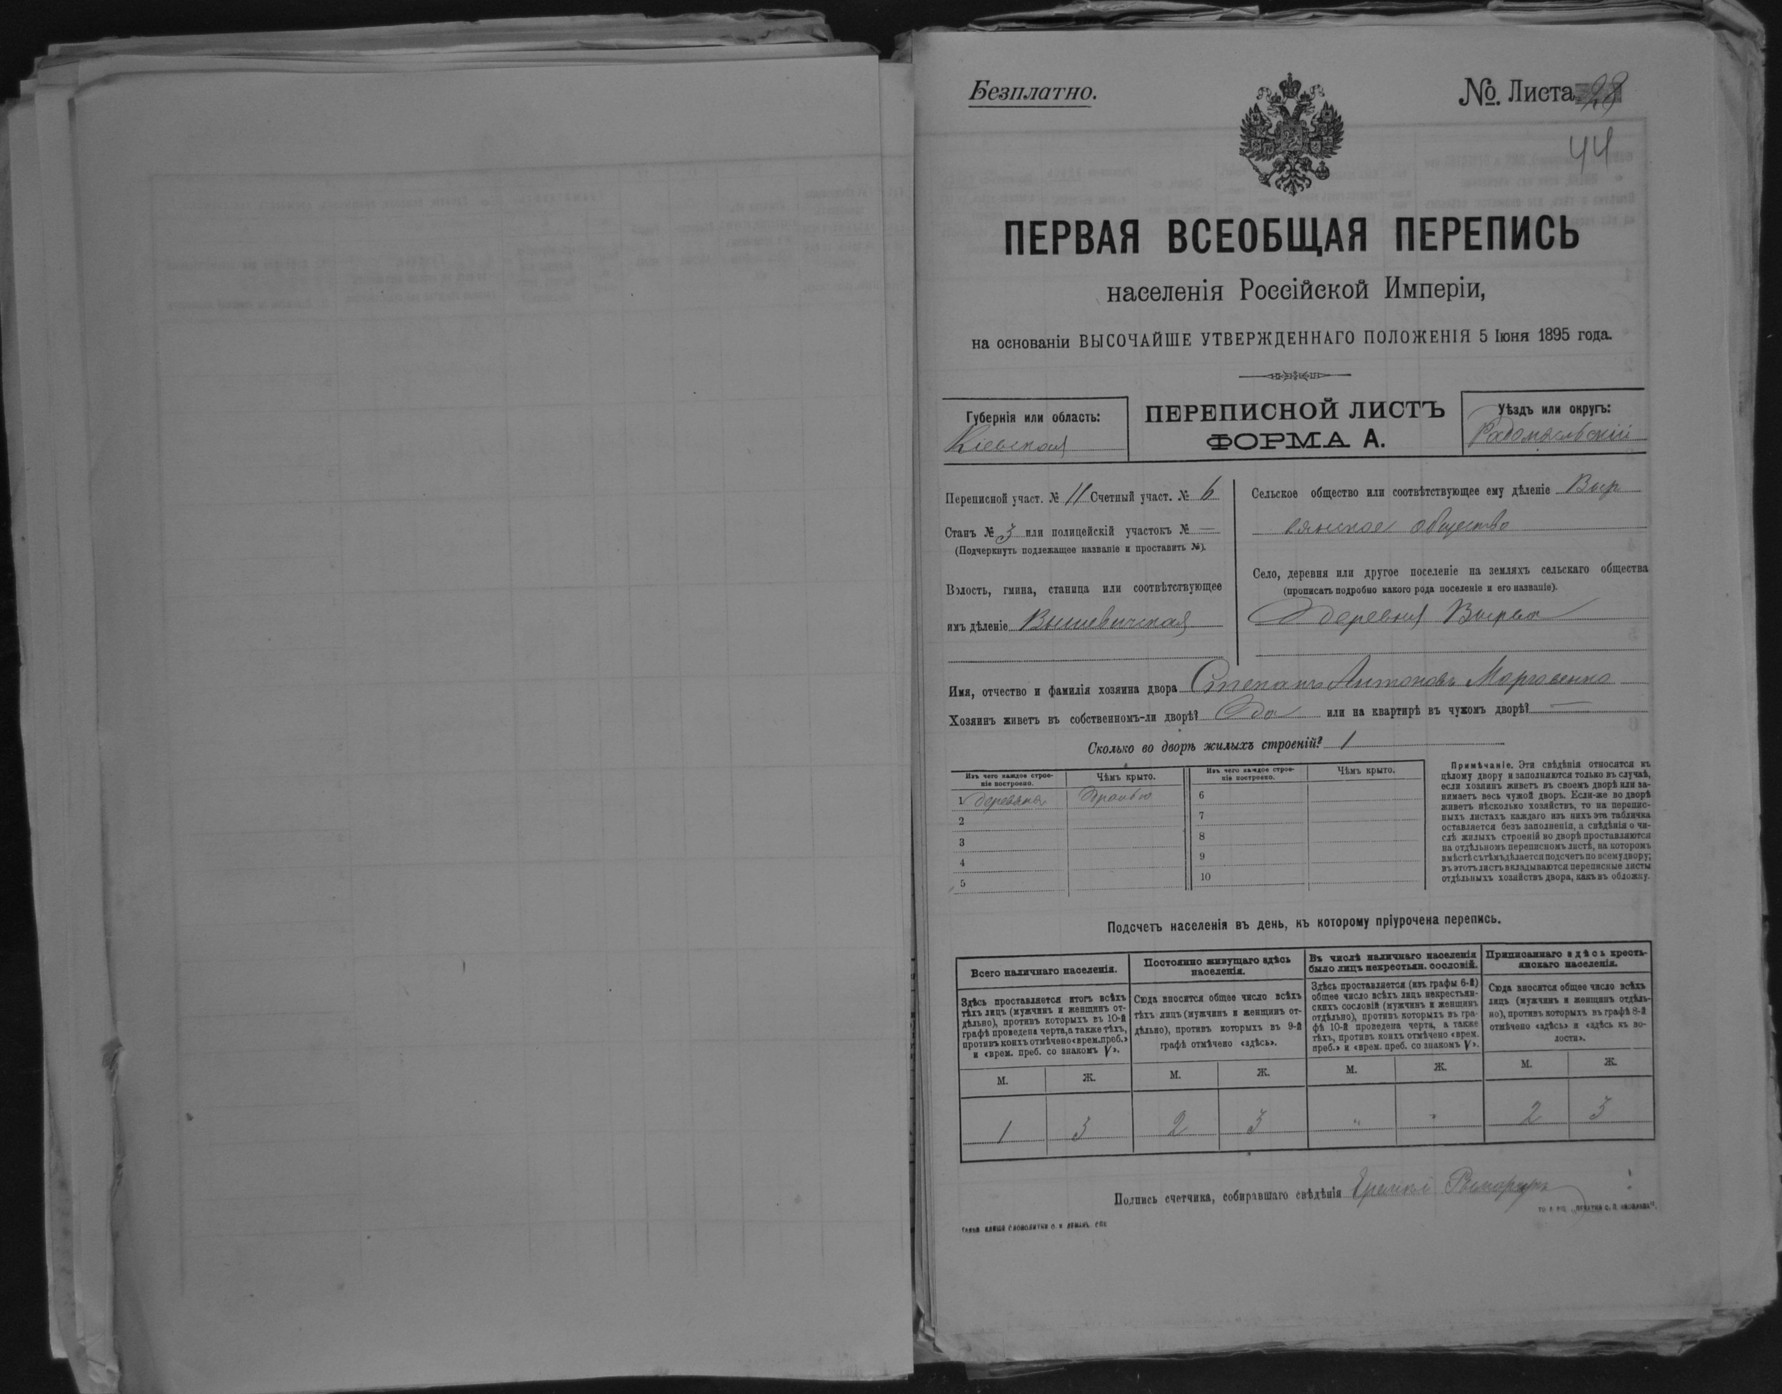 Безплатно.
№. Листа 28
44
ПЕРВАЯ ВСЕОБЩАЯ ПЕРЕПИСЬ
населенія Россійской Имперіи,
на основаніи ВЫСОЧАЙШЕ УТВЕРЖДЕННАГО ПОЛОЖЕНІЯ 5 Іюня 1895 года.
Губернія или область:
Кіевская
ПЕРЕПИСНОЙ ЛИСТЪ
ФОРМА А.
Уѣздъ или округъ:
Радомысльскій
Переписной участ. № 11 Счетный участ. № 6
Станъ № 3 или полицейскій участокъ № —
(Подчеркнуть подлежащее названіе и проставить №).
Волость, гмина, станица или соотвѣтствующее
имъ дѣленіе Вышевичская
Сельское общество или соотвѣтствующее ему дѣленіе Выр
вянское общество
Село, деревня или другое поселеніе на земляхъ сельскаго общества
(прописать подробно какого рода поселеніе и его названіе).
деревня Вырва
Имя, отчество и фамилія хозяина двора Степанъ Антоновъ
Хозяинъ живетъ въ собственномъ-ли дворѣ? Да или на квартирѣ въ чужомъ дворѣ? —
Сколько во дворѣ жилыхъ строеній? 1
Изъ чего каждое строе-
ніе построено.
Чѣмъ крыто.
Изъ чего каждое строе-
ніе построено.
Чѣмъ крыто.
1 деревяны
6
2
7
3
8
4
9
5
10
Примѣчаніе. Эти свѣдѣнія относятся къ
цѣлому двору и заполняются только въ случаѣ,
если хозяинъ живетъ въ своемъ дворѣ или за-
нимаетъ весь чужой дворъ. Если-же во дворѣ
живетъ нѣсколько хозяйствъ, то на перепис-
ныхъ листахъ каждаго изъ нихъ эта табличка
оставляется безъ заполненія, а свѣдѣнія о чи-
слѣ жилыхъ строеній во дворѣ проставляются
на отдѣльномъ переписномъ листѣ, на которомъ
вмѣстѣ съ тѣмъ дѣлается подсчетъ по всему двору;
въ этотъ листъ вкладываются переписные листы
отдѣльныхъ хозяйствъ двора, какъ въ обложку.
Подсчетъ населенія въ день, къ которому пріурочена перепись.
Всего наличнаго населенія.
Постоянно живущаго здѣсь
населенія.
Въ числѣ наличнаго населенія
было лицъ некрестьян. сословій.
Приписаннаго здѣсь кресть-
янскаго населенія.
Здѣсь проставляется итогъ всѣхъ
тѣхъ лицъ (мужчинъ и женщинъ от-
дѣльно), противъ которыхъ въ 10-й
графѣ проведена черта, а также тѣхъ,
противъ коихъ отмѣчено «врем. преб.»
и «врем. преб. со знакомъ V».
Сюда вносится общее число всѣхъ
тѣхъ лицъ (мужчинъ и женщинъ от-
дѣльно), противъ которыхъ въ 9-й
графѣ отмѣчено «здѣсь».
Здѣсь проставляется (изъ графы 6-й)
общее число всѣхъ лицъ некрестьян-
скихъ сословій (мужчинъ и женщинъ
отдѣльно), противъ которыхъ въ гра-
фѣ 10-й проведена черта, а также
тѣхъ, противъ коихъ отмѣчено «врем.
преб.» и «врем. преб. со знакомъ V».
Сюда вносится общее число всѣхъ
лицъ (мужчинъ и женщинъ отдѣль-
но), противъ которыхъ въ графѣ 8-й
отмѣчено «здѣсь» и «здѣсь въ во-
лости».
М. Ж. М. Ж. М. Ж. М. Ж.
1 3 2 3 " " 2 3
Подпись счетчика, собиравшаго свѣдѣнія